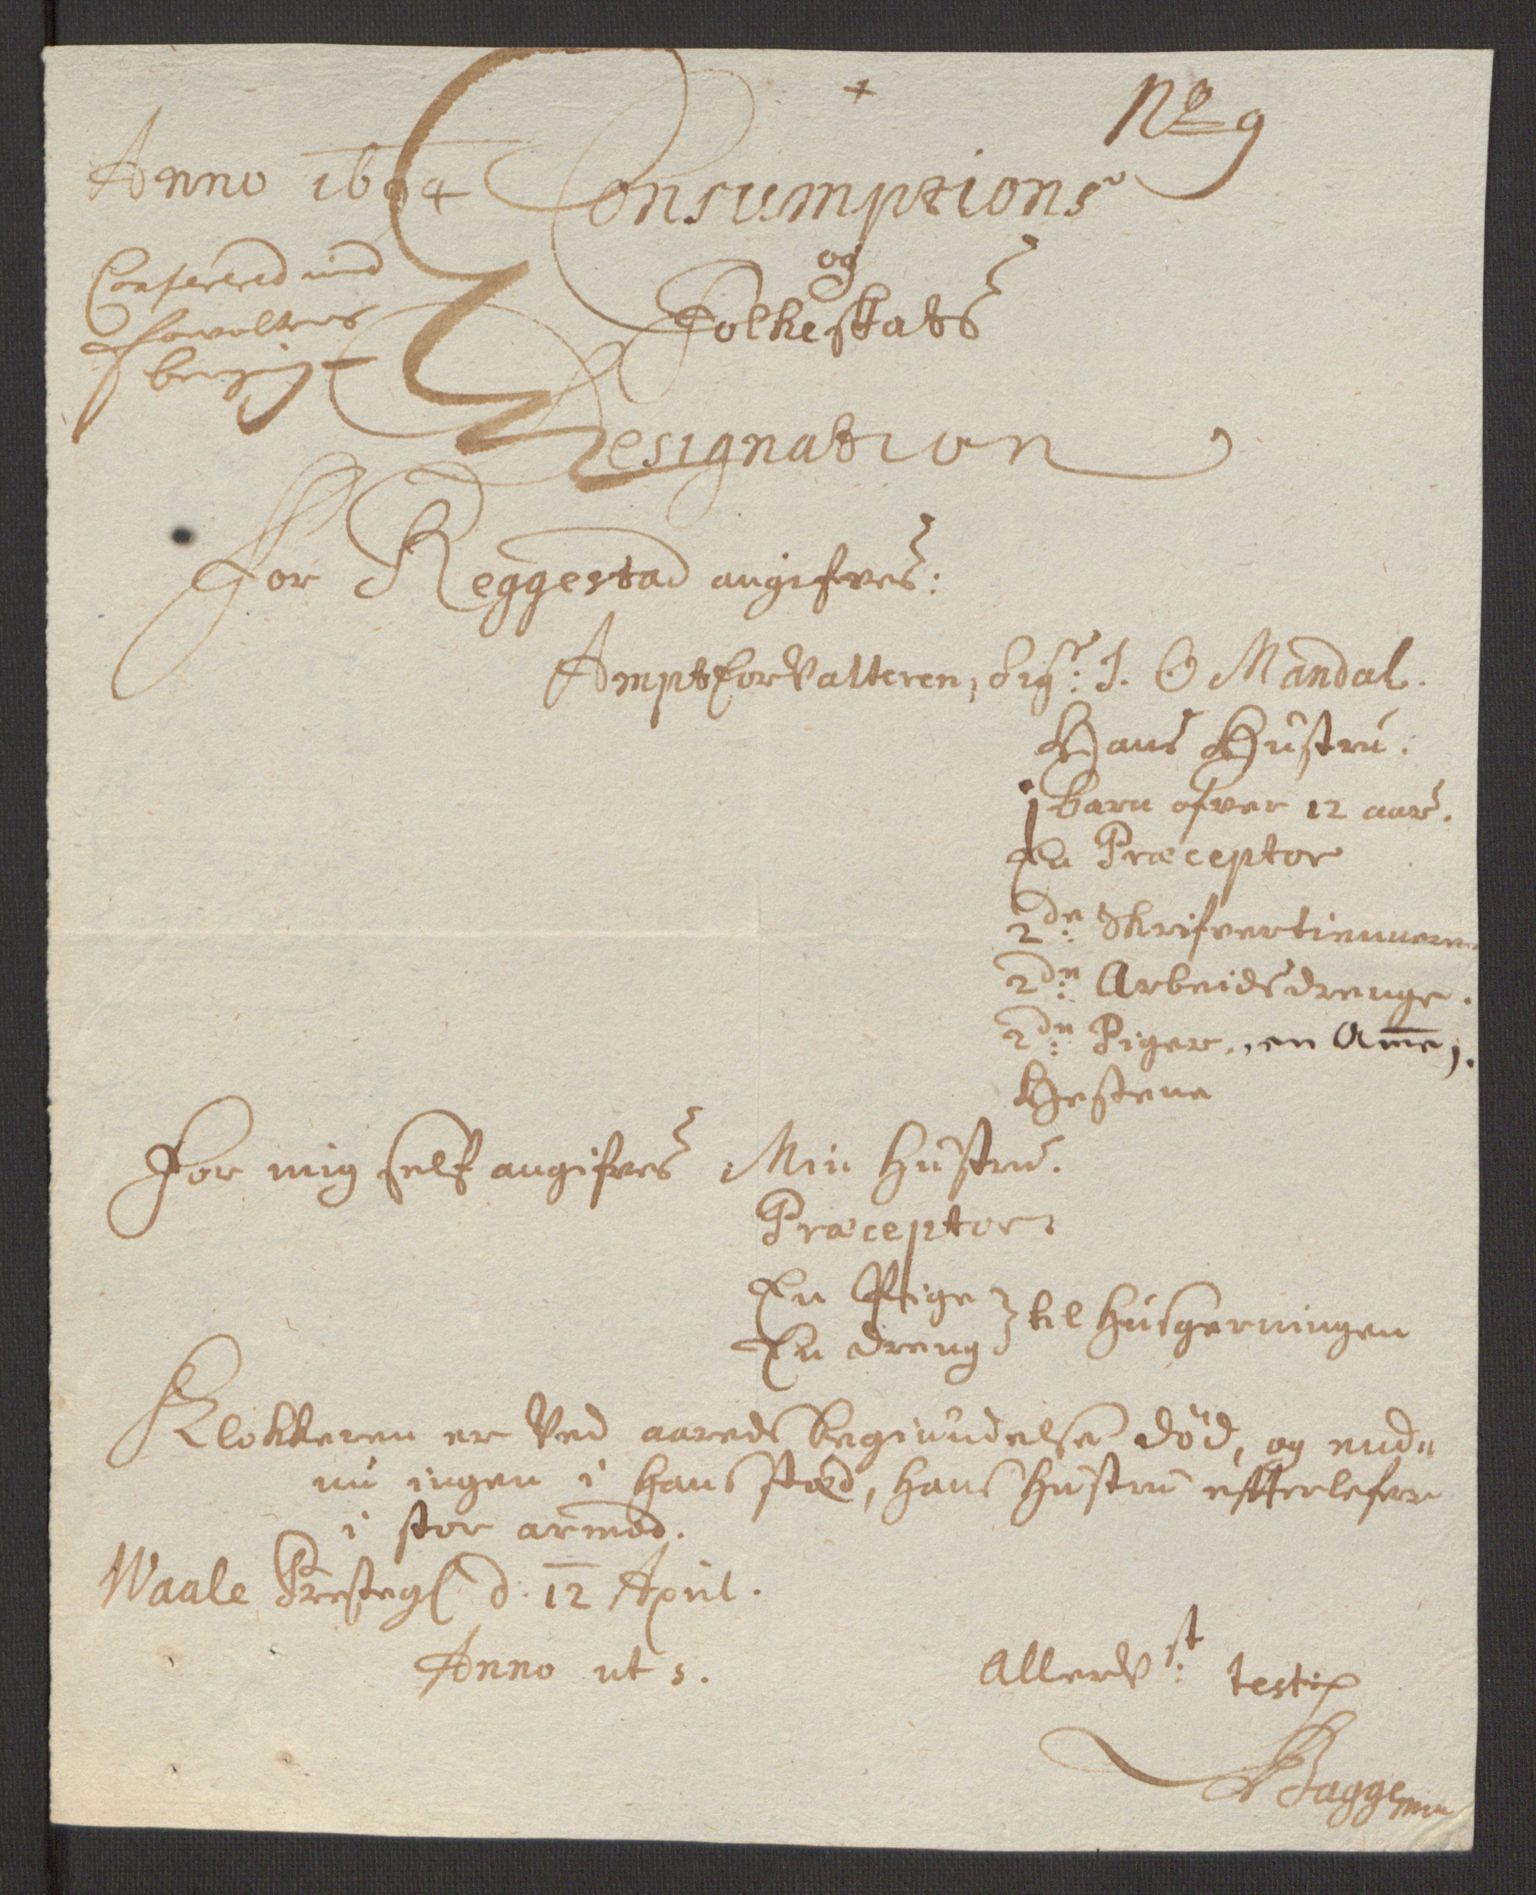 No 9
Anno 1694 Consumptions
og
Folkeskats
Designation
Confererid med
forvalters
For Reggestad angifves:
AmptsforValteren, Sigr: J. O Mandal.
Hans Hustru.
j barn ofver 12 aar.
En Præceptor
2de: Skrifvertiennere
2de: Arbeidsdrenge.
2de: Piger, en Amme,
Hestene
For mig self angifves Min Hustru.
Præceptor
En Pige
En dreng } til Husgerningen
Klokkeren er Ved aareds begiundelse död, og end=
nu ingen i hans stæd, hans hustru effterlefver
i stor armod.
Waale Presteg. d. 12 April.
Anno ut s.
AllerVst: testis
Bagge mm